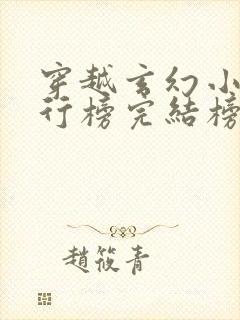 穿越玄幻小
行榜完結榜
趙筱青